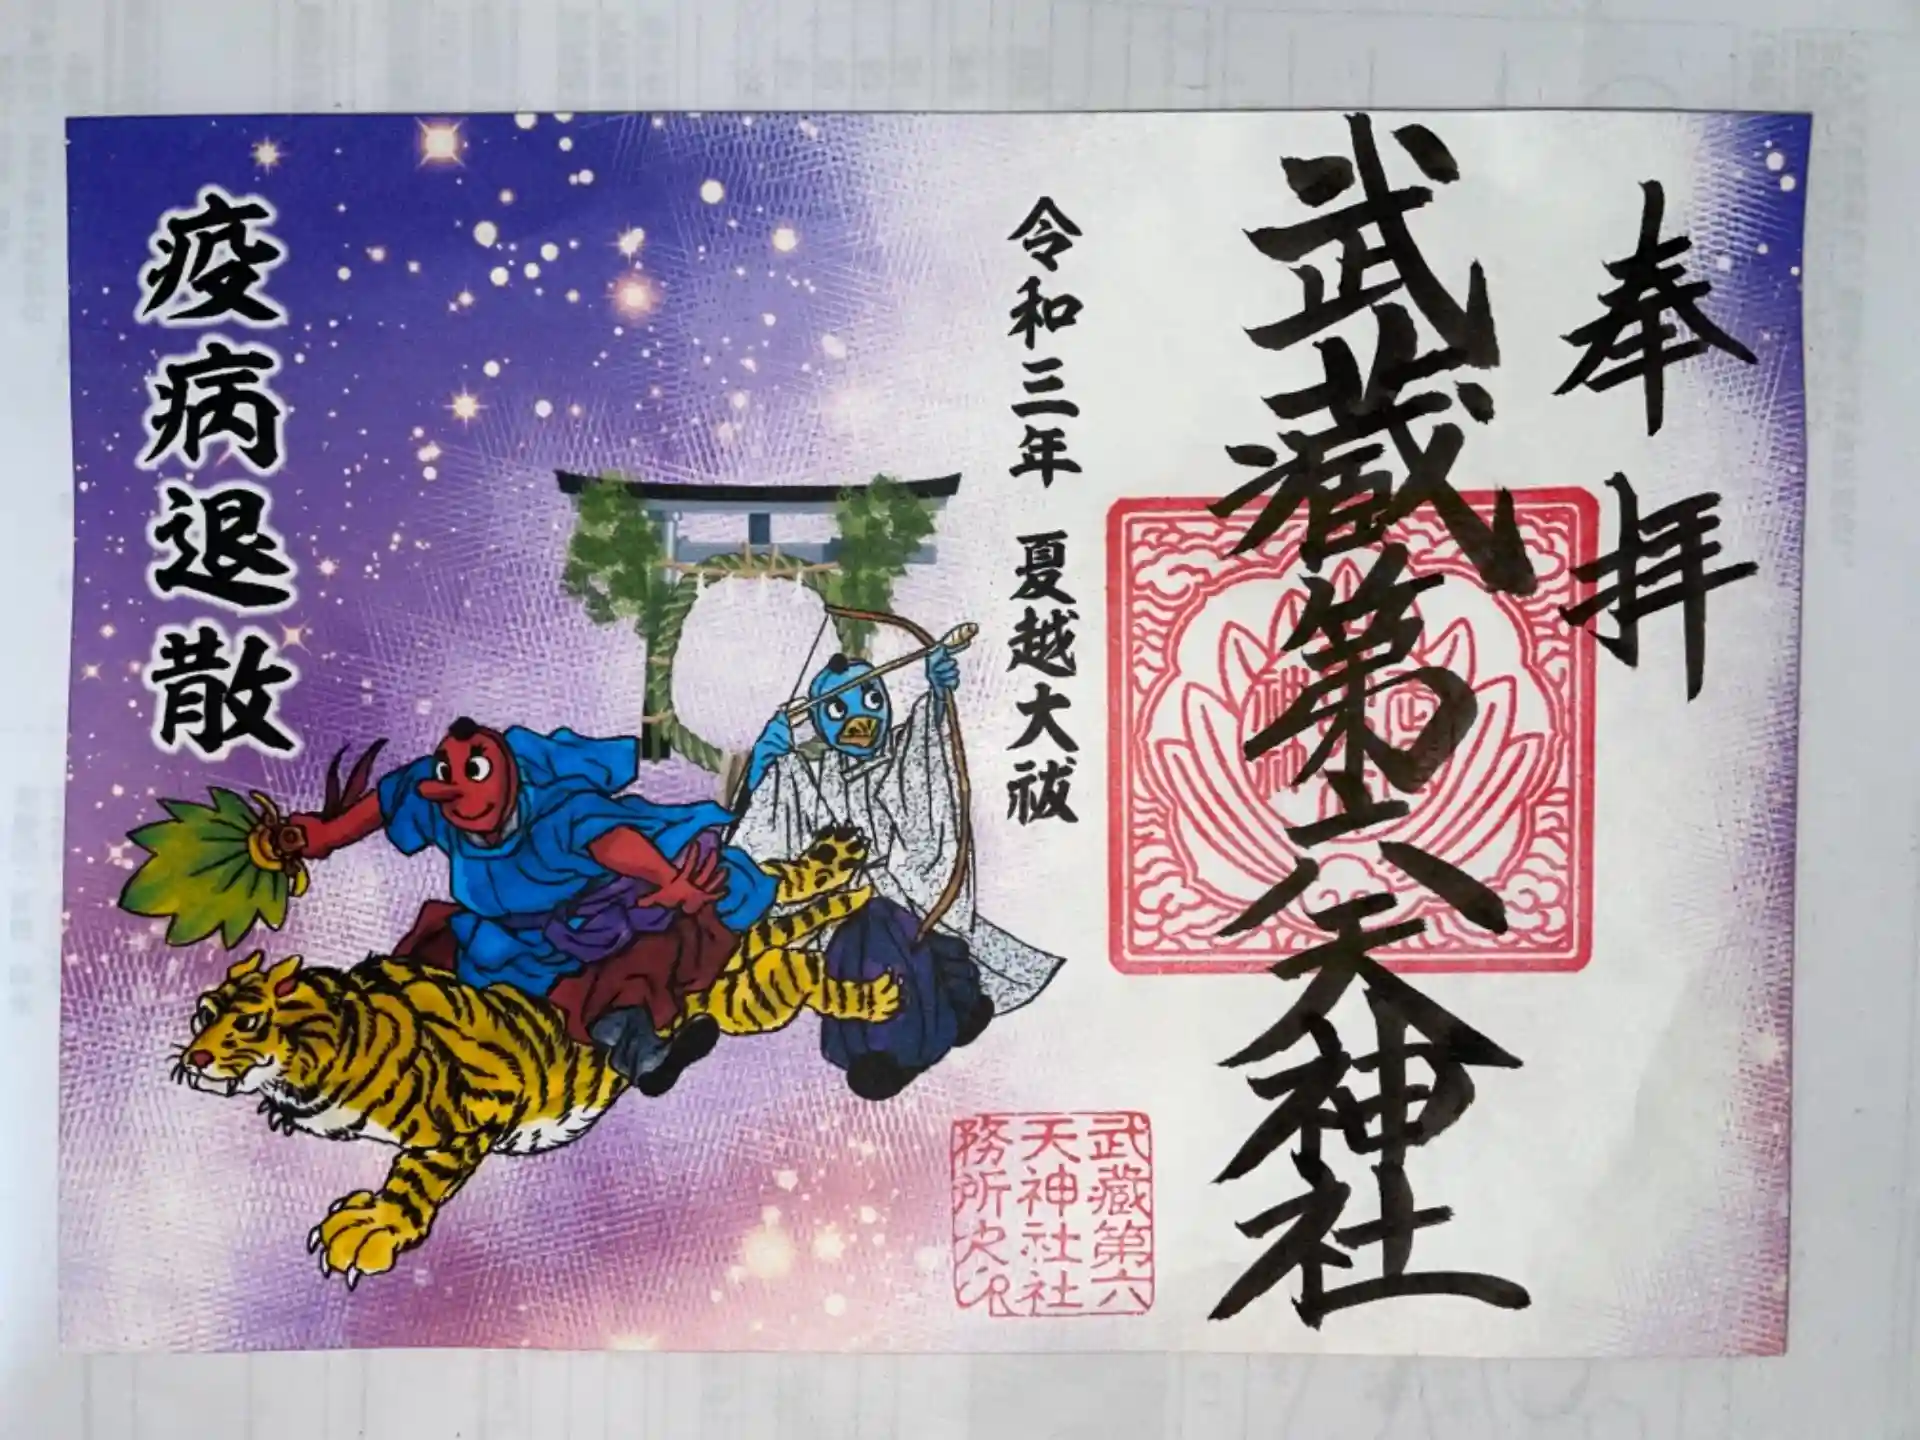 奉拝
武蔵第六天神社
令和三年 夏越大祓
武蔵第六
天神社社
務所之印
疫病退散